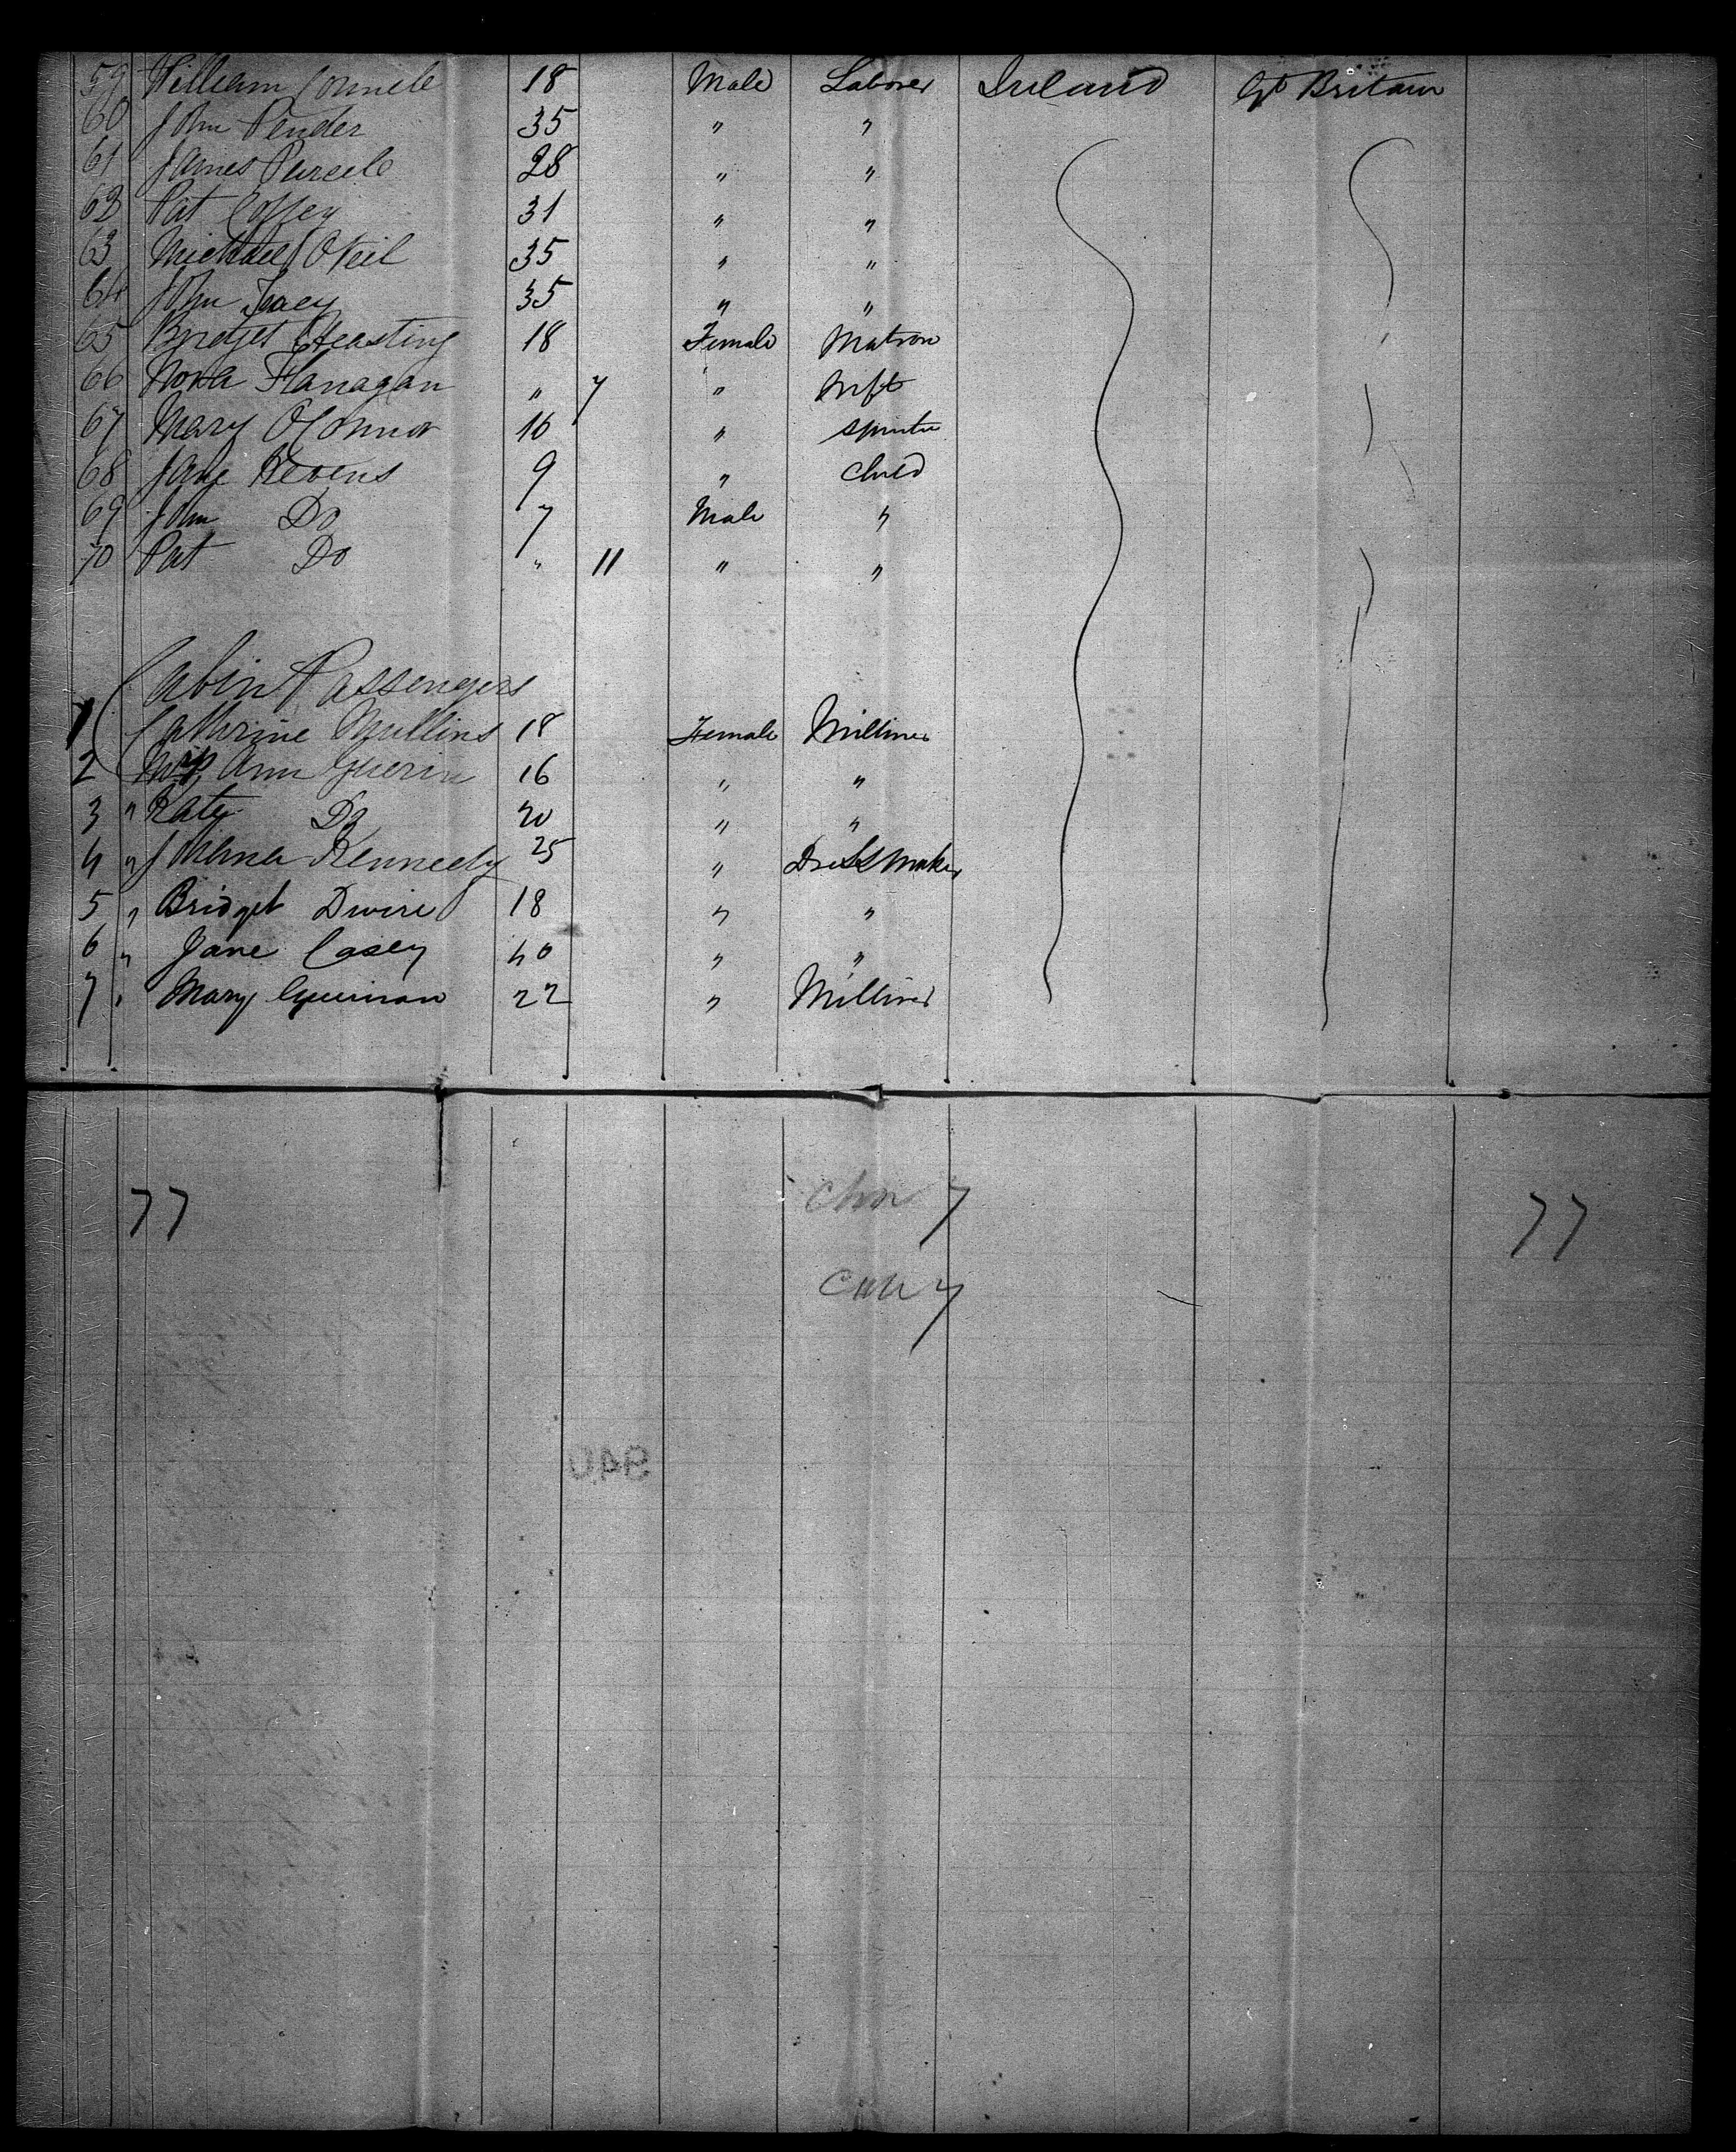 59 William Connell 18 Male Laborer Ireland Gt Britain
60 John Pender 35 " "
61 James Purcell 28 " "
62 Pat Coffey 31 " "
63 Michael O Neil 35 " "
64 John 35 " "
65 Bridget 18 Female Matron
66 Nora Flanagan " 7 " Inft
67 Mary O Connor 16 " Spinster
68 Jane 9 " Child
69 John Do 7 Male "
70 Pat Do " 11 " "
Cabin Passengers
1 Cathrine Mullins 18 Female Milliner
2 Miss Ann Guerin 16 " "
3 " Katy Do 20 " "
4 " Johana Kennedy 25 " Dress Maker
5 " Bridget Dwire 18 " "
6 " Jane Casey 40 " "
7 " Mary 22 " Milliner
77 7 77
7
940